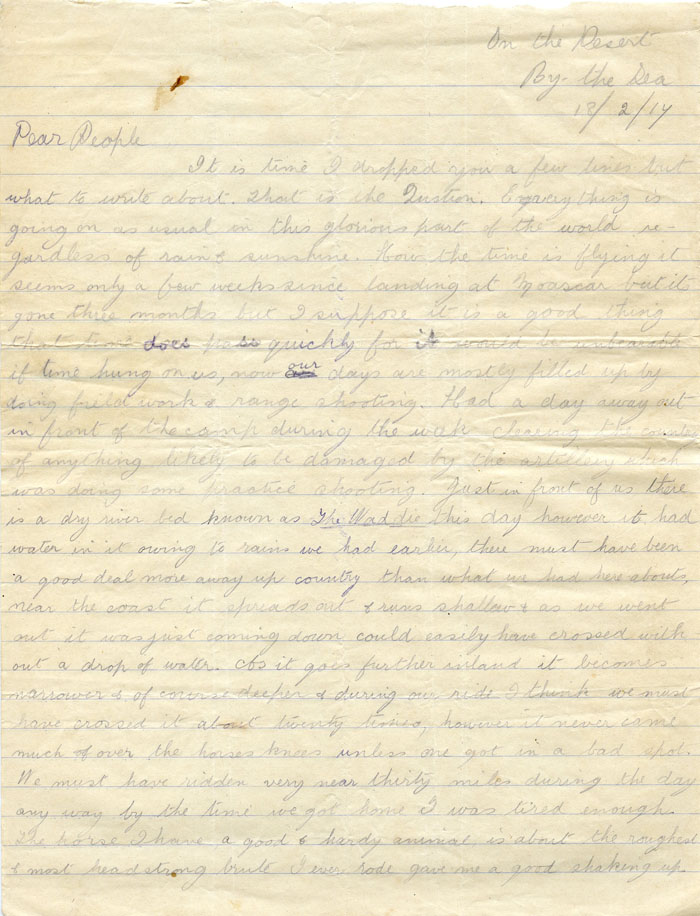 On the Desert
By the Sea
18/2/17
Dear People
It is time I dropped you a few lines but
what to write about. That is the Qustion. Everything is
going on as usual in this glorious part of the world re-
gardless of rain & sunshine. How the time is flying it
seems only a few weeks since landing at Moascar but it
gone three months but I suppose it is a good thing
that time does pass quickly for it would be unbearable
if time hung on us, now our days are mostly filled up by
doing field work & range shooting. Had a day away out
in front of the camp during the week clearing the country
of anything likely to be damaged by the artillery which
was doing some practice shooting. Just in front of us there
is a dry river bed known as The Waddie this day however it had
water in it owing to rains we had earlier, there must have been
a good deal more away up country than what we had here abouts,
near the coast it spreads out & runs shallow & as we went
out it was just coming down could easily have crossed with
out a drop of water. As it goes further inland it becomes
narrower & of course deeper & during our ride I think we must
have crossed it about twenty times, however it never came
much of over the horses knees unless one got in a bad spot.
We must have ridden very near thirty miles during the day
any way by the time we got home I was tired enough.
The horse I have a good & hardy animal is about the roughest
& most headstrong brute I ever rode gave me a good shaking up.